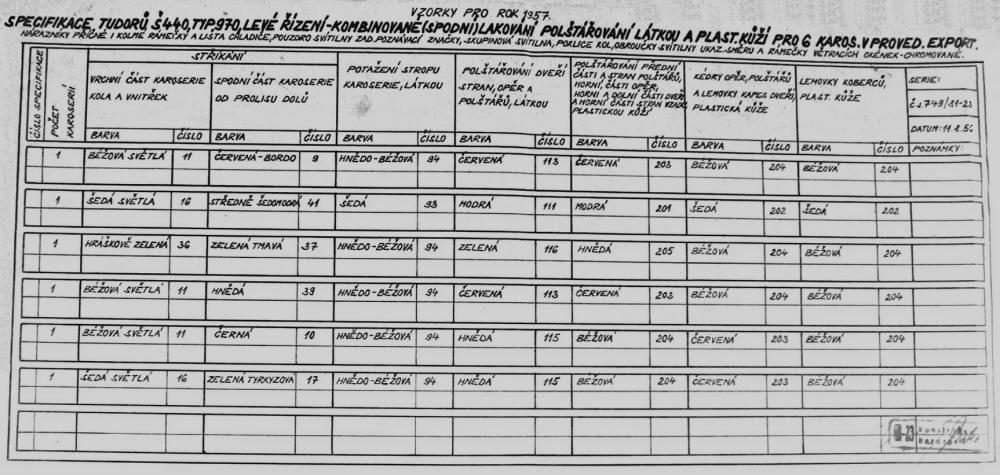 VZORKY PRO ROK 1957.
SPECIFIKACE, TUDORŮ Š 440, TYP. 970, LEVÉ ŘÍZENÍ-KOMBINOVANÉ (SPODNÍ) LAKOVÁNÍ POLŠTÁŘOVÁNÍ LÁTKOU A PLAST. KŮŽÍ PRO 6 KAROS. V PROVED. EXPORT.
NÁRAZNÍKY PŘÍČNÉ I KOLMÉ RÁMEČKY A LIŠTA CHLADIČE, POUZDRO SVÍTILNY ZAD. POZNÁVACÍ ZNAČKY, SKUPINOVÁ SVÍTILNA, POKLICE KOL, OBROUČKY SVÍTILNY UKAZ. SMĚRU A RÁMEČKY VĚTRACÍCH OKÉNEK-CHROMOVANÉ.
ČÍSLO SPECIFIKACE
POČET KAROSERIÍ
STŘÍKÁNÍ
VRCHNÍ ČÁST KAROSERIE
KOLA A VNITŘEK
SPODNÍ ČÁST KAROSERIE
OD PROLISU DOLŮ
POTAŽENÍ STROPU
KAROSERIE, LÁTKOU
POLŠTÁŘOVÁNÍ DVEŘÍ
STRAN, OPĚR A
POLŠTÁŘŮ, LÁTKOU
POLŠTÁŘOVÁNÍ PŘEDNÍ
ČÁSTI A STRAN POLŠTÁŘŮ,
HORNÍ, ČÁSTI OPĚR,
HORNÍ A DOLNÍ ČÁSTI DVEŘÍ
A HORNÍ ČÁSTI STRAN VZADU,
PLASTICKOU KŮŽÍ
KÉDRY OPĚR, POLŠTÁŘŮ
A LEMOVKY KAPES DVEŘÍ,
PLASTICKÁ KŮŽE
LEMOVKY KOBERCŮ,
PLAST. KŮŽE
SERIE:
Č.s. 749/31-23
DATUM: 11.8.56
BARVA ČÍSLO BARVA ČÍSLO BARVA ČÍSLO BARVA ČÍSLO BARVA ČÍSLO BARVA ČÍSLO BARVA ČÍSLO POZNÁMKY:
1 BÉŽOVÁ SVĚTLÁ 11 ČERVENÁ-BORDO 9 HNĚDO-BÉŽOVÁ 94 ČERVENÁ 113 ČERVENÁ 203 BÉŽOVÁ 204 BÉŽOVÁ 204
1 ŠEDÁ SVĚTLÁ 16 STŘEDNĚ ŠEDOMODRÁ 41 ŠEDÁ 93 MODRÁ 111 MODRÁ 201 ŠEDÁ 202 ŠEDÁ 202
1 HRÁŠKOVĚ ZELENÁ 36 ZELENÁ TMAVÁ 37 HNĚDO-BÉŽOVÁ 94 ZELENÁ 116 HNĚDÁ 205 BÉŽOVÁ 204 BÉŽOVÁ 204
1 BÉŽOVÁ SVĚTLÁ 11 HNĚDÁ 39 HNĚDO-BÉŽOVÁ 94 ČERVENÁ 113 ČERVENÁ 203 BÉŽOVÁ 204 BÉŽOVÁ 204
1 BÉŽOVÁ SVĚTLÁ 11 ČERNÁ 10 HNĚDO-BÉŽOVÁ 94 HNĚDÁ 115 BÉŽOVÁ 204 ČERVENÁ 203 BÉŽOVÁ 204
1 ŠEDÁ SVĚTLÁ 16 ZELENÁ TYRKYZOVÁ 17 HNĚDO-BÉŽOVÁ 94 HNĚDÁ 115 BÉŽOVÁ 204 ČERVENÁ 203 BÉŽOVÁ 204